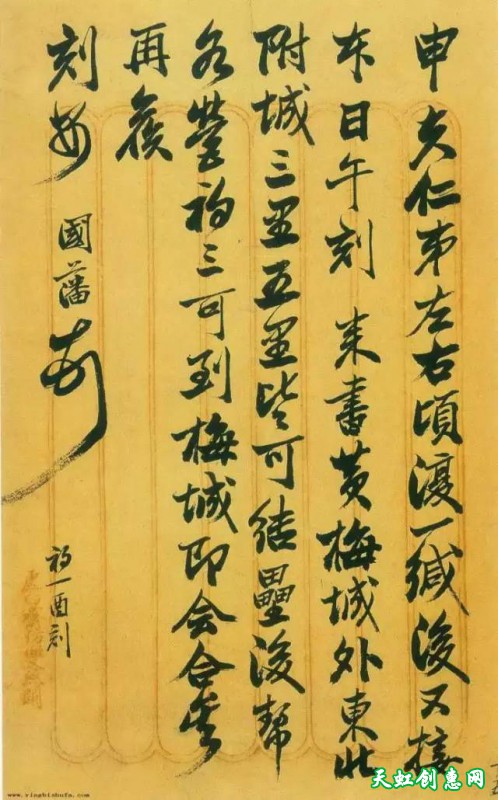 申夫仁弟左右頃復一緘後又接
本日午刻来書黄梅城外東北
附城三里五里皆可結壘後幫
各營初三可到梅城即会合矣
再候
刻安 國藩
初一酉刻
www.xingbishufa.com
天虹创惠网